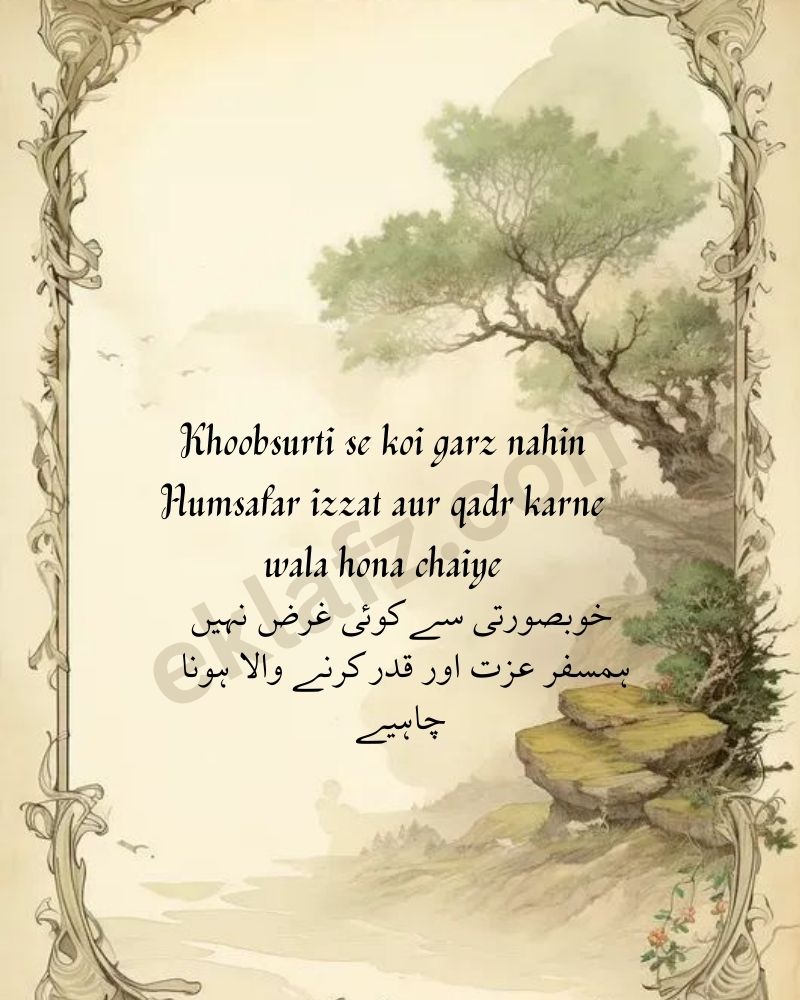 Khoobsurti se koi garz nahin
Humsafar izzat aur qadr karne
wala hona chaiye
خوبصورتی سے کوئی غرض نہیں
ہمسفر عزت اور قدر کرنے والا ہونا
چاہیے
eklafz.com